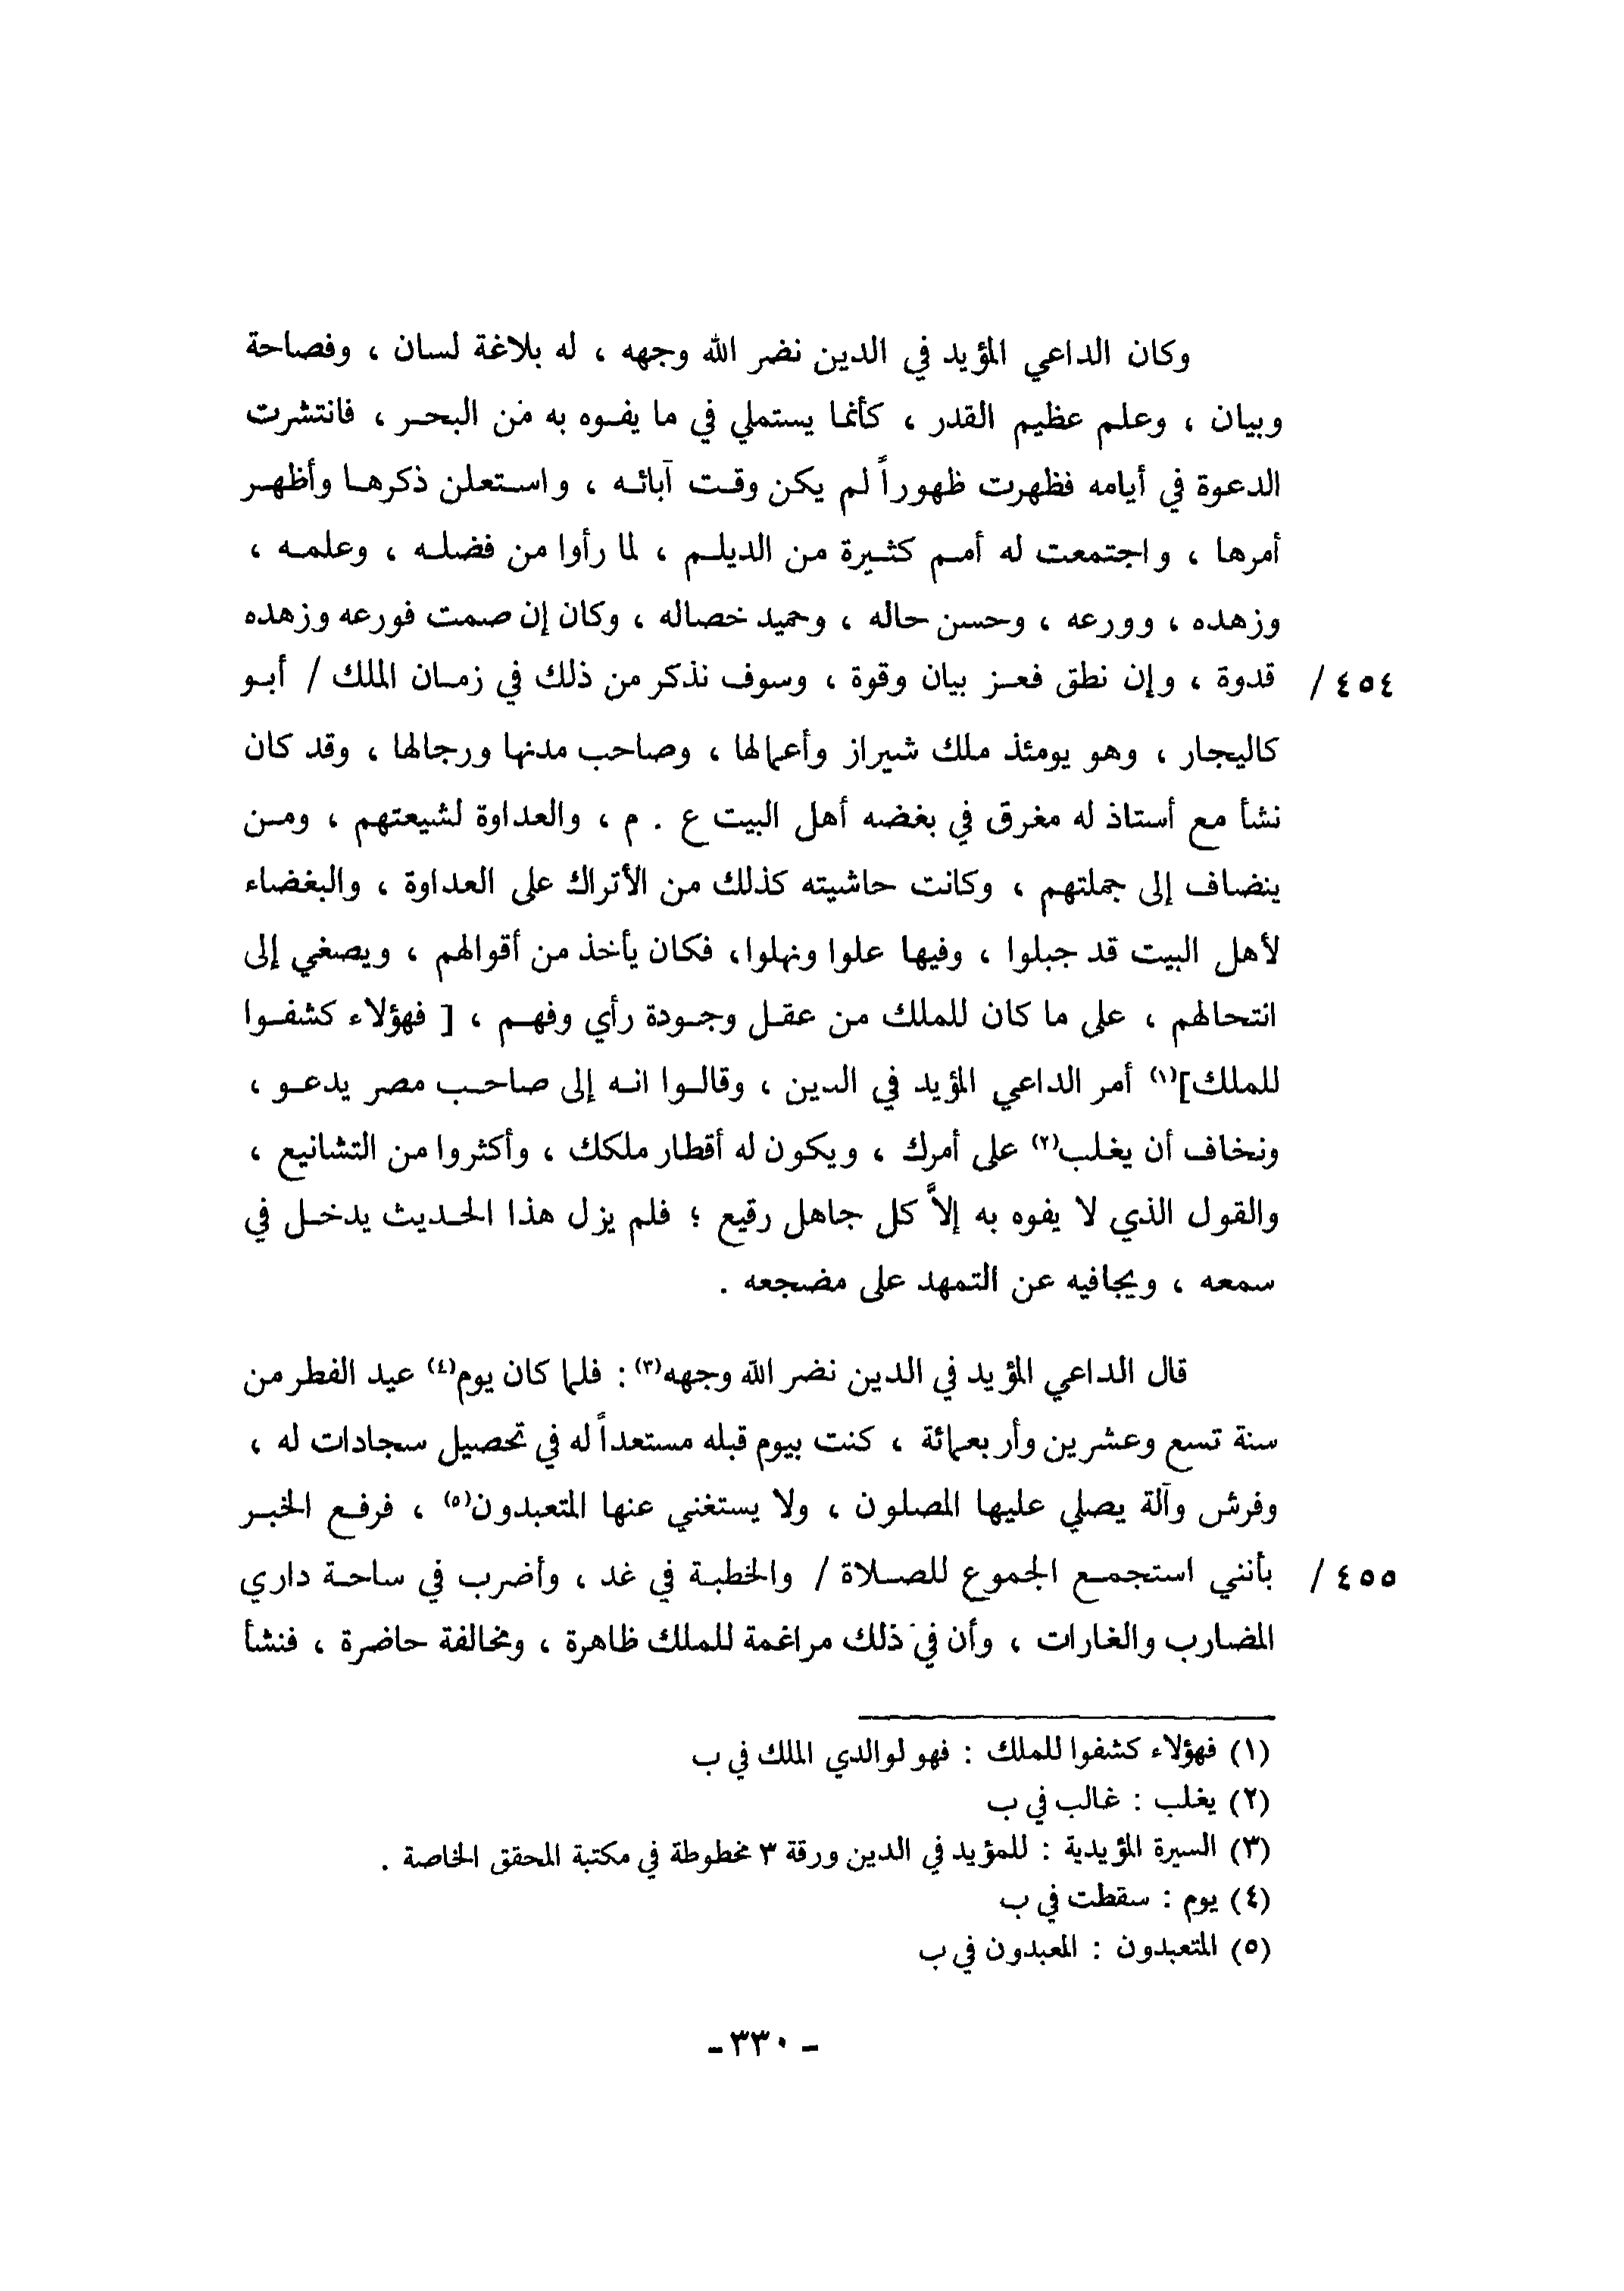 وكان الداعي المؤيد في الدين نضر الله وجهه ، له بلاغة لسان ، وفصاحة
وبيان ، وعلم عظيم القدر ، كأنما يستملي في ما يفوه به من البحر ، فانتشرت
الدعوة في أيامه فظهرت ظهوراً لم يكن وقت آبائه ، واستعلن ذكرها وأظهر
أمرها ، واجتمعت له أمم كثيرة من الديلم ، لما رأوا من فضله ، وعلمه ،
وزهده ، وورعه ، وحسن حاله ، وحميد خصاله ، وكان إن صمت فورعه وزهده
٤٥٤ / قدوة ، وإن نطق فعز بيان وقوة ، وسوف نذكر من ذلك في زمان الملك / أبو
كاليجار ، وهو يومئذ ملك شيراز وأعمالها ، وصاحب مدنها ورجالها ، وقد كان
نشأ مع أستاذ له مغرق في بغضه أهل البيت ع . م ، والعداوة لشيعتهم ، ومن
ينضاف إلى جملتهم ، وكانت حاشيته كذلك من الأتراك على العداوة ، والبغضاء
لأهل البيت قد جبلوا ، وفيها علوا ونهلوا، فكان يأخذ من أقوالهم ، ويصغي إلى
انتحالهم ، على ما كان للملك من عقل وجودة رأي وفهم ، [ فهؤلاء كشفوا
للملك](١) أمر الداعي المؤيد في الدين ، وقالوا انه إلى صاحب مصر يدعو ،
ونخاف أن يغلب(٢) على أمرك ، ويكون له أقطار ملكك ، وأكثروا من التشانيع ،
والقول الذي لا يفوه به إلاَّ كل جاهل رقيع ؛ فلم يزل هذا الحديث يدخل في
سمعه ، ويجافيه عن التمهد على مضجعه .
قال الداعي المؤيد في الدين نضر الله وجهه(٣) : فلما كان يوم(٤) عيد الفطر من
سنة تسع وعشرين وأربعمائة ، كنت بيوم قبله مستعداً له في تحصيل سجادات له ،
وفرش وآلة يصلي عليها المصلون ، ولا يستغني عنها المتعبدون(٥) ، فرفع الخبر
٤٥٥ / بأنني استجمع الجموع للصلاة / والخطبة في غد ، وأضرب في ساحة داري
المضارب والغارات ، وأن في ذلك مراغمة للملك ظاهرة ، ومخالفة حاضرة ، فنشأ
(١) فهؤلاء كشفوا للملك : فهو لوالدي الملك في ب
(٢) يغلب : غالب في ب
(٣) السيرة المؤيدية : للمؤيد في الدين ورقة ٣ مخطوطة في مكتبة المحقق الخاصة .
(٤) يوم : سقطت في ب
(٥) المتعبدون : المعبدون في ب
- ٣٣٠ -